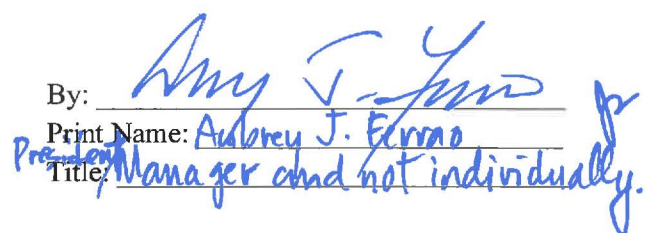 By:
Print Name: Aubrey J. Ferrao
President/
Title: Manager and not individually.